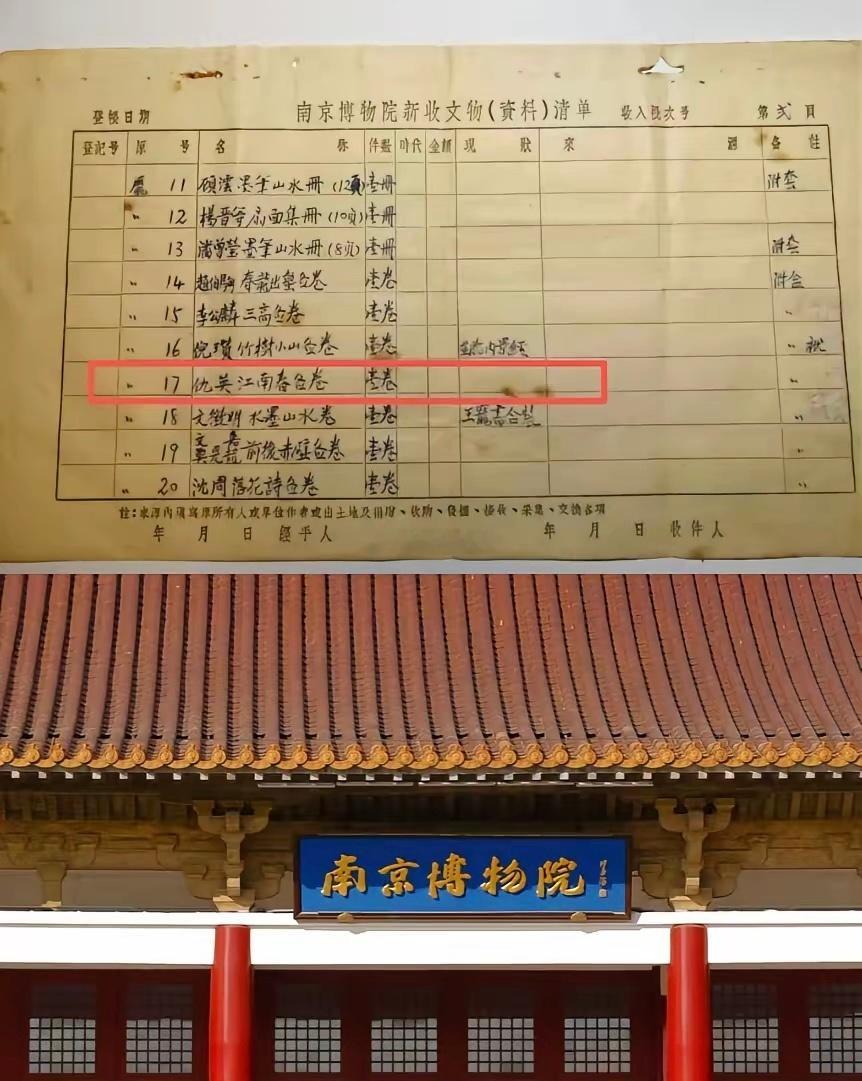 登记日期 南京博物院新收文物(資料)清单 收入批次号 第弍頁
登記号 原号 名称 件数 时代 金額 現狀 來源 备註
龐 11 顧澐墨筆山水冊(12頁) 壹冊 附套
〃 12 楊晋等扇面集冊(10頁) 壹冊
〃 13 潘曾瑩墨筆山水冊(8頁) 壹冊 附套
〃 14 趙伯駒春龍出蟄圖卷 壹卷 附盒
〃 15 李公麟三高圖卷 壹卷 〃
〃 16 倪瓚竹樹小山圖卷 壹卷 〃
〃 17 仇英江南春圖卷 壹卷 〃
〃 18 文徵明水墨山水卷 壹卷 〃
〃 19 前後赤壁圖卷 壹卷 〃
〃 20 沈周落花詩圖卷 壹卷 〃
註:來源內須寫原所有人或單位作者或出土地及捐贈、收購、發掘、接收、采集、交換各項
年 月 日 經手人 年 月 日 收件人
南京博物院